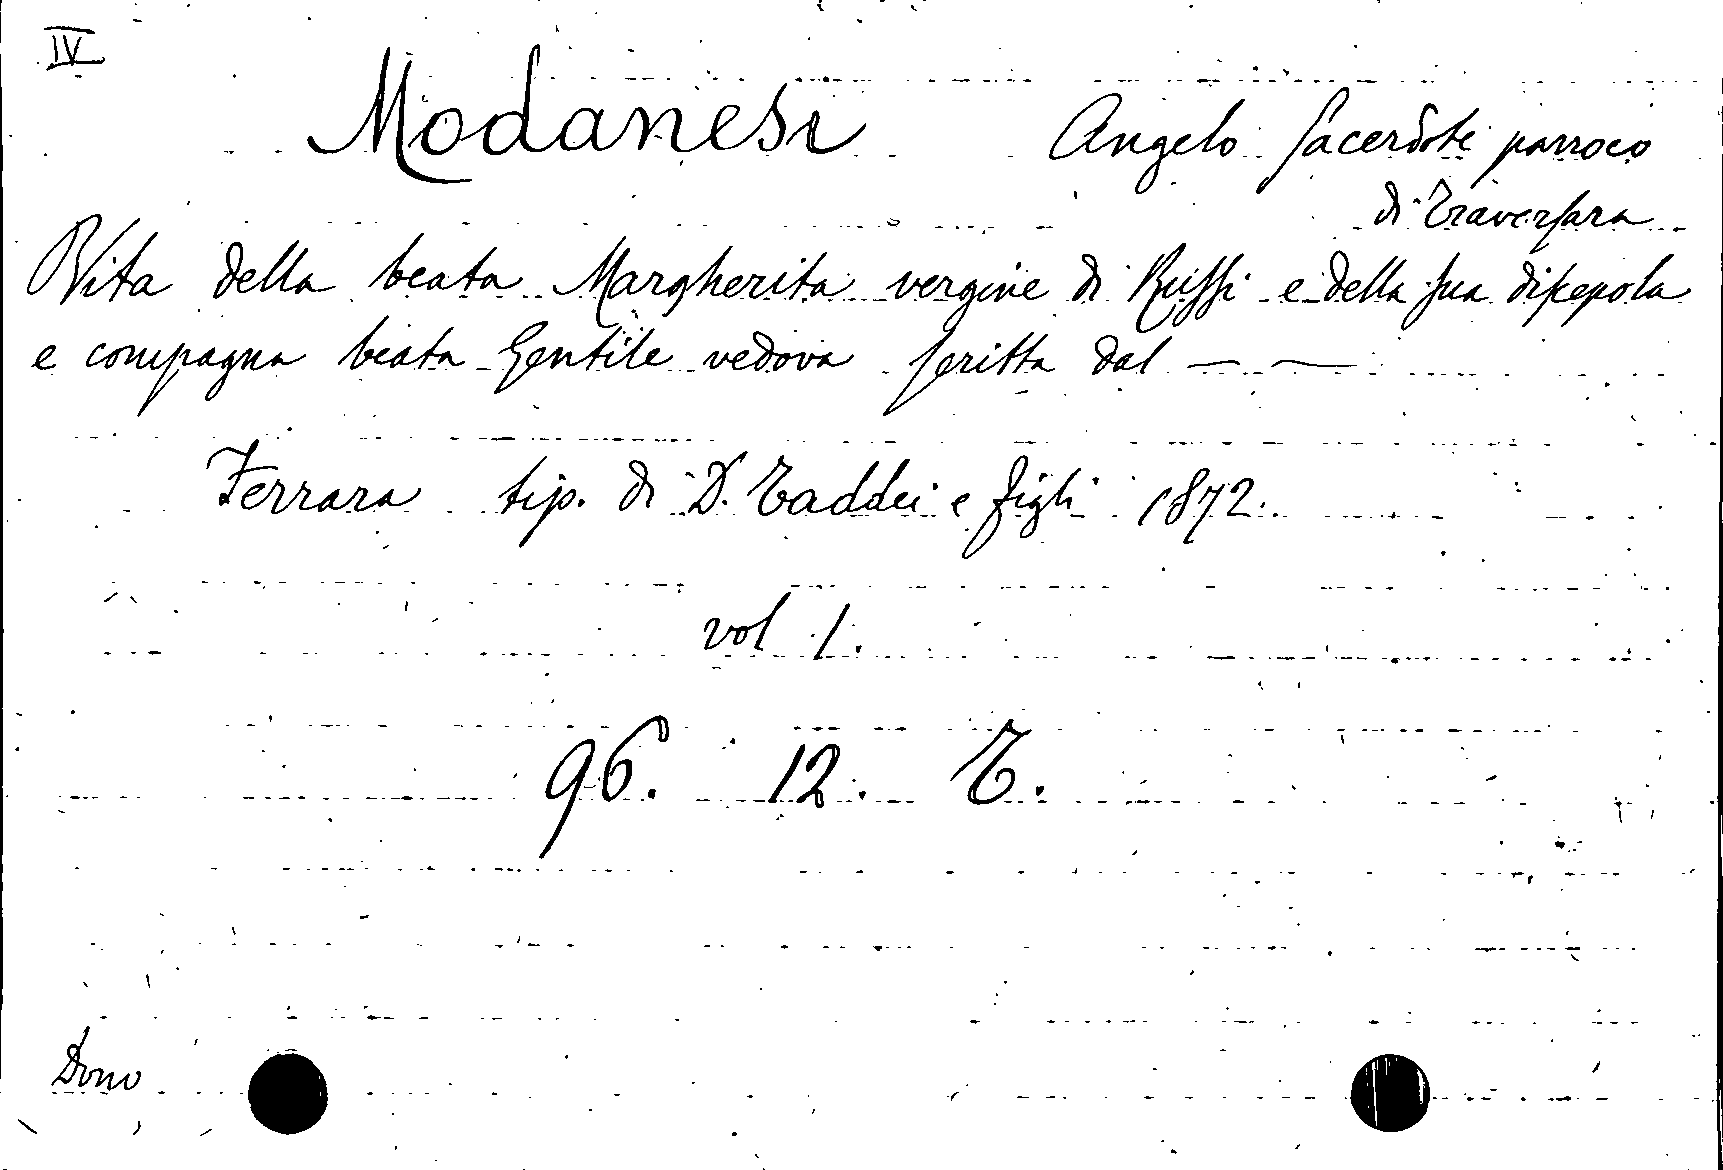 IV
Modanesi Angelo sacerdote parroco
di Traversara
Vita della beata Margherita vergine di Russi e della sua discepola
e compagna beata Gentile vedova scritta dal — —
Ferrara tip. di D. Taddei e figli 1872.
vol 1.
96. 12. T.
Dono